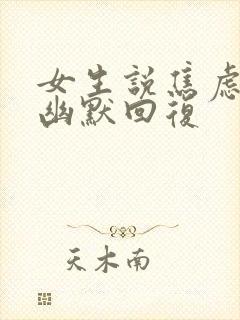 女生说焦虑
幽默回復
天木南